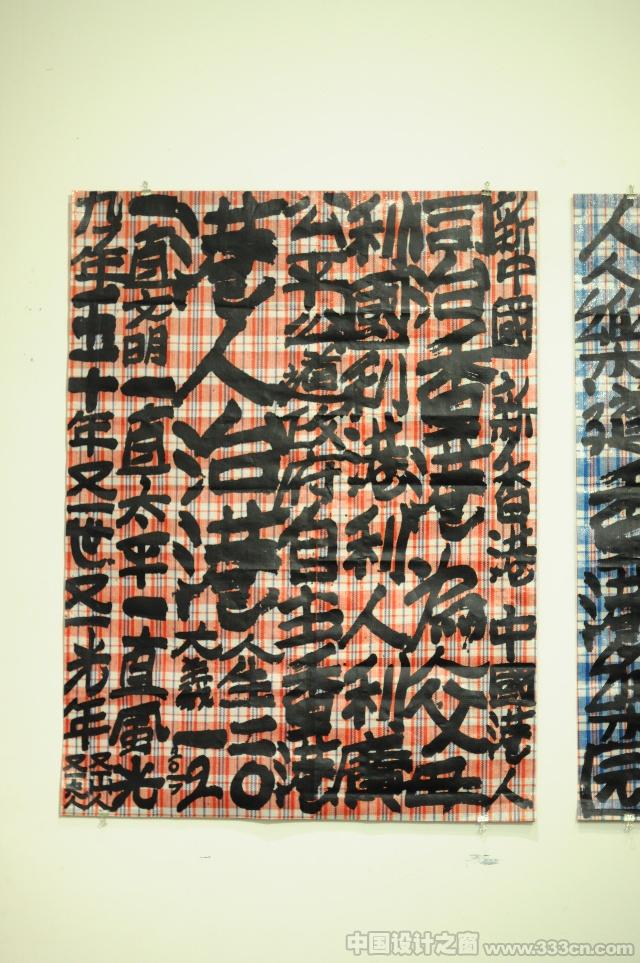 新中國新香港中國港人
同治香港為父母
利國利港利人利廣
公平公道政府自主香港
港人治港人生二〇
大義一20
2017
一直文明一直太平一直風光
九年五十年又一世又一光年
又一山人
人人樂道香港樂園
中国设计之窗 www.333cn.com